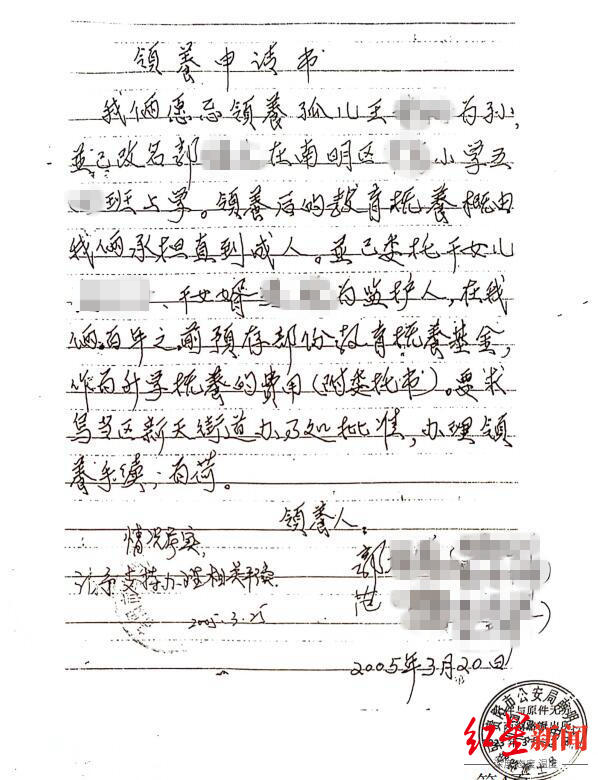 领养申请书
我俩愿意领养孤儿王 为孙,
並已改名郭 在南明区 小学五
班上学。领养后的教育抚养概由
我俩承担直到成人。並已委托干女儿
、干女婿 为监护人,在我
俩百年之前预存部份教育抚养基金,
作为升学抚养的费用(附委托书)。要求
乌当区新天街道办予如批准,办理领
养手续;为荷。
领养人:
情况属实,
郭
支持办理相关手续
范
2005.3.25
2005年3月20日
贵阳市公安局南明
与原件
红星新闻